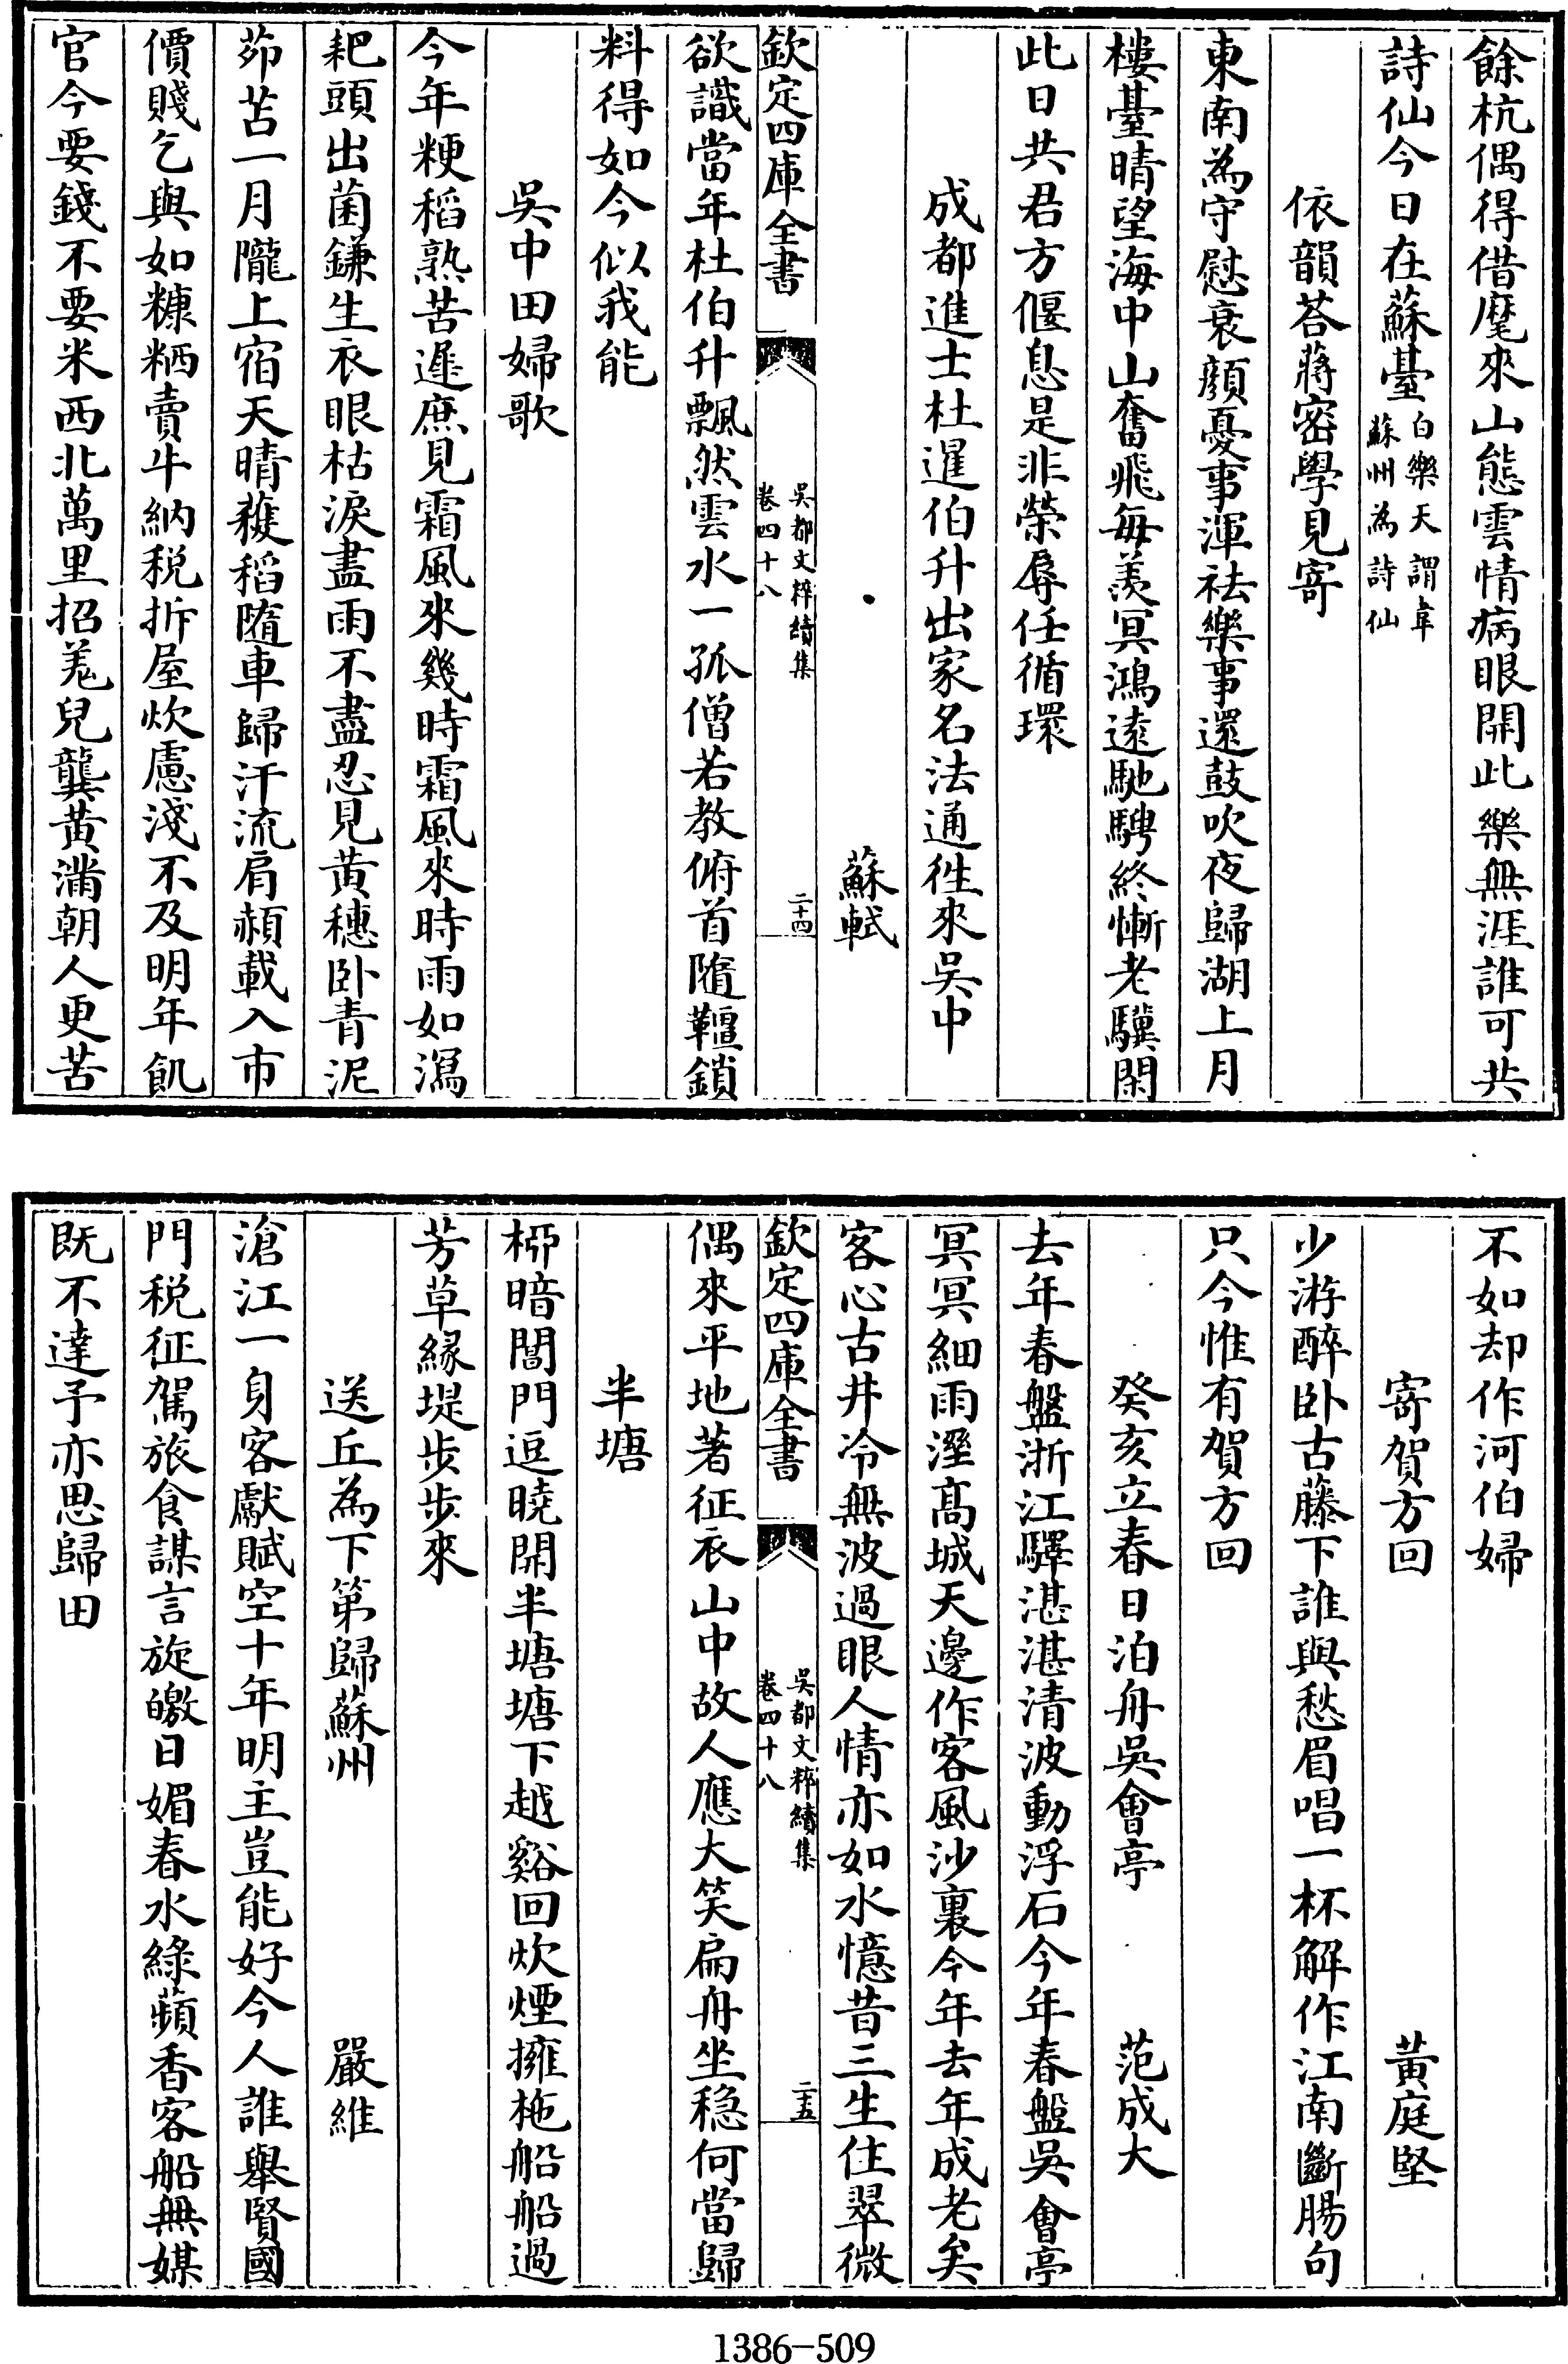 餘杭偶得借麾來山態雲情病眼開此樂無涯誰可共
詩仙今日在蘇臺白樂天謂韋蘇州為詩仙
依韻荅蔣密學見寄
東南為守慰衰顔憂事渾祛樂事還鼓吹夜歸湖上月
樓臺晴望海中山奮飛每羨冥鴻遠馳騁終慚老驥閑
此日共君方偃息是非榮辱任循環
蘇軾
成都進士杜暹伯升出家名法通徃來吳中
欽定四庫全書
吳都文粹續集
卷四十八
二十四
欲識當年杜伯升飄然雲水一孤僧若教俯首隨韁鎖
料得如今似我能
吳中田婦歌
今年粳稻熟苦遲庶見霜風來幾時霜風來時雨如瀉
耙頭出菌鎌生衣眼枯淚盡雨不盡忍見黄穗卧青泥
茆苫一月隴上宿天晴穫稻隨車歸汗流肩赬載入市
價賤乞與如糠粞賣牛納税拆屋炊慮淺不及明年飢
官今要錢不要米西北萬里招羌兒龔黄滿朝人更苦
不如却作河伯婦
寄賀方回 黃庭堅
少游醉卧古藤下誰與愁眉唱一杯解作江南斷腸句
只今惟有賀方回
癸亥立春日泊舟吳會亭 范成大
去年春盤浙江驛湛湛清波動浮石今年春盤吳會亭
冥冥細雨溼髙城天邊作客風沙裏今年去年成老矣
客心古井冷無波過眼人情亦如水憶昔三生住翠微
欽定四庫全書
吳都文粹續集
卷四十八
二十五
偶來平地著征衣山中故人應大笑扁舟坐穏何當歸
半塘
栁暗閶門逗曉開半塘塘下越谿回炊煙擁柂船船過
芳草縁堤步步來
送丘為下第歸蘇州 嚴維
滄江一身客獻賦空十年明主豈能好今人誰舉賢國
門税征駕旅食謀言旋皦日媚春水綠蘋香客船無媒
既不達予亦思歸田
1386-509